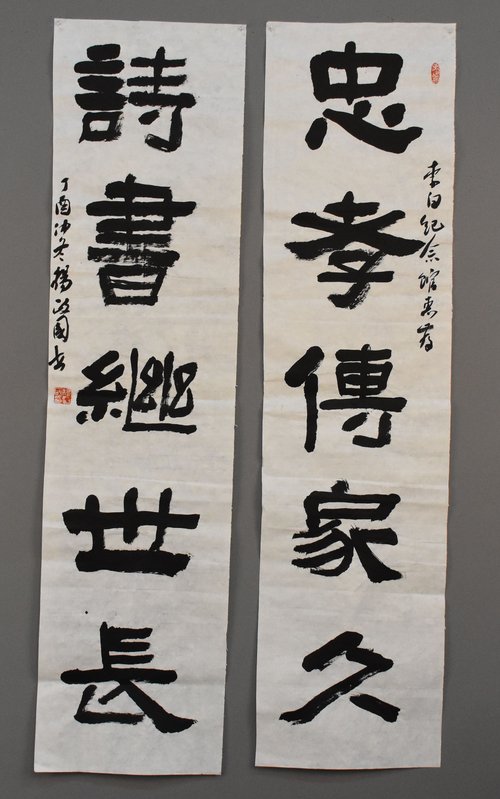 忠孝傳家久
李白纪念館惠存
詩書繼世長
丁酉仲冬楊政國書